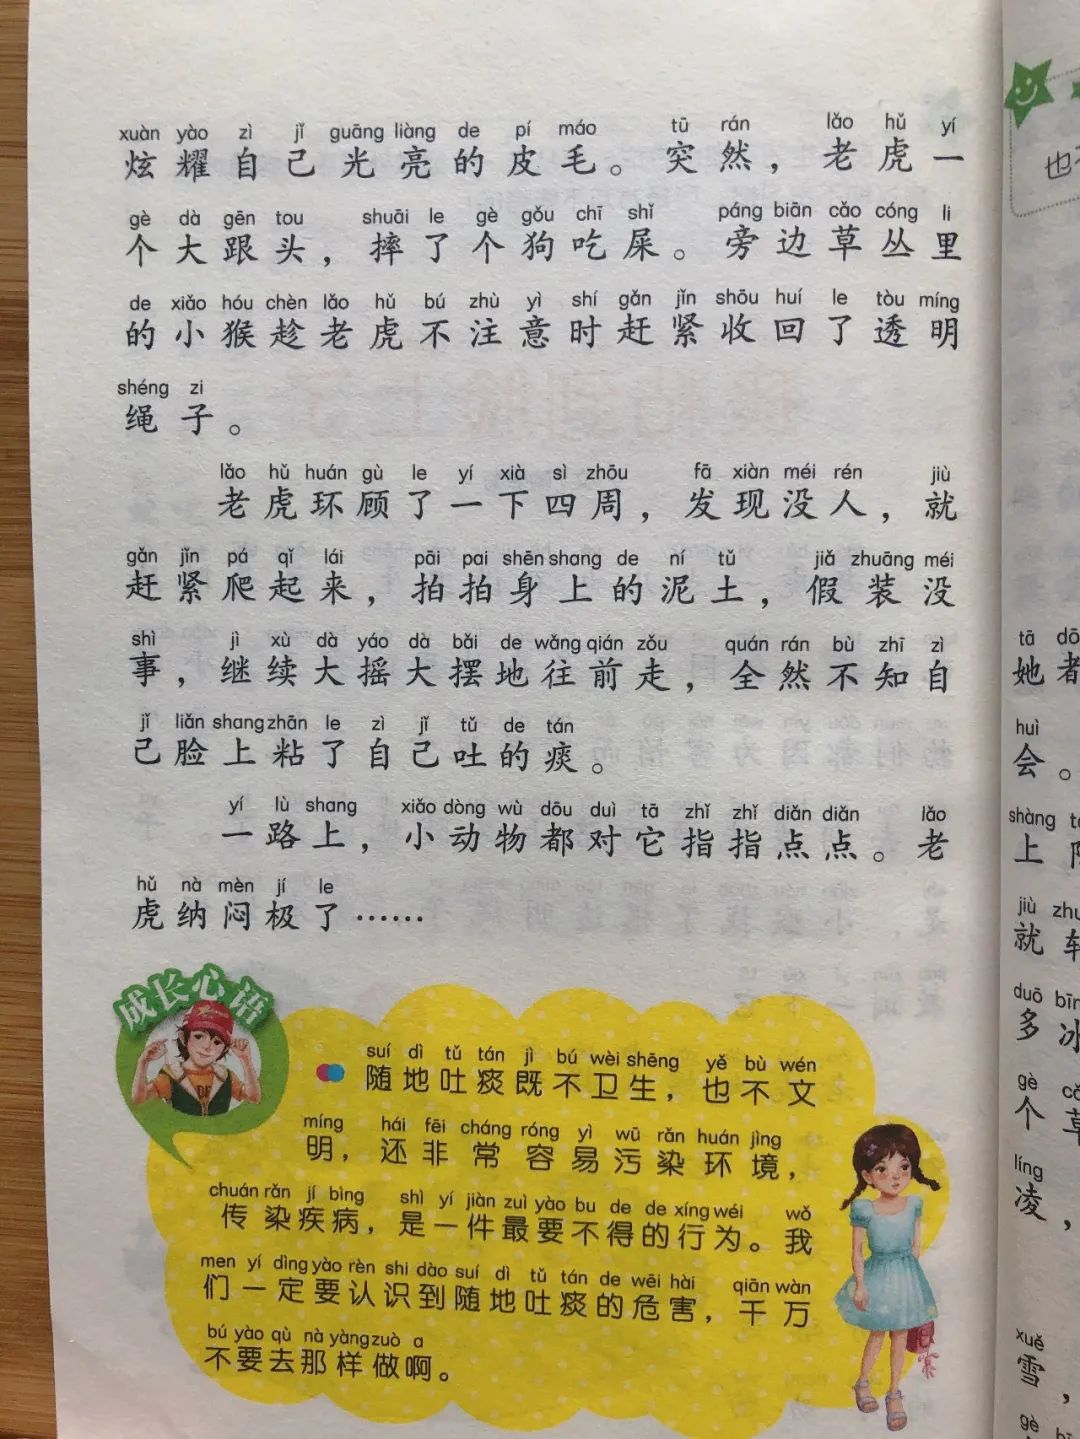 xuàn yào zì jǐ guāng liàng de pí máo tū rán lǎo hǔ yí
炫耀自己光亮的皮毛。突然，老虎一
gè dà gēn tou shuāi le gè gǒu chī shǐ páng biān cǎo cóng li
个大跟头，摔了个狗吃屎。旁边草丛里
de xiǎo hóu chèn lǎo hǔ bú zhù yì shí gǎn jǐn shōu huí le tòu míng
的小猴趁老虎不注意时赶紧收回了透明
shéng zi
绳子。
lǎo hǔ huán gù le yí xià sì zhōu fā xiàn méi rén jiù
老虎环顾了一下四周，发现没人，就
gǎn jǐn pá qǐ lái pāi pai shēn shang de ní tǔ jiǎ zhuāng méi
赶紧爬起来，拍拍身上的泥土，假装没
shì jì xù dà yáo dà bǎi de wǎng qián zǒu quán rán bù zhī zì
事，继续大摇大摆地往前走，全然不知自
jǐ liǎn shang zhān le zì jǐ tǔ de tán
己脸上粘了自己吐的痰。
yí lù shang xiǎo dòng wù dōu duì tā zhǐ zhǐ diǎn diǎn lǎo
一路上，小动物都对它指指点点。老
hǔ nà mèn jí le
虎纳闷极了……
成长心语
suí dì tǔ tán jì bú wèi shēng yě bù wén
随地吐痰既不卫生，也不文
míng hái fēi cháng róng yì wū rǎn huán jìng
明，还非常容易污染环境，
chuán rǎn jí bìng shì yí jiàn zuì yào bu de de xíng wéi wǒ
传染疾病，是一件最要不得的行为。我
men yí dìng yào rèn shi dào suí dì tǔ tán de wēi hài qiān wàn
们一定要认识到随地吐痰的危害，千万
bú yào qù nà yàng zuò a
不要去那样做啊。
也
tā
她
huì
会。
shàng
上
jiù
就
duō bīn
多冰
gè
个草
líng
凌，
xuě
雪，
gè